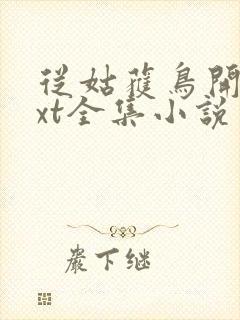 從姑獲鳥開
xt全集小説
嚴下继